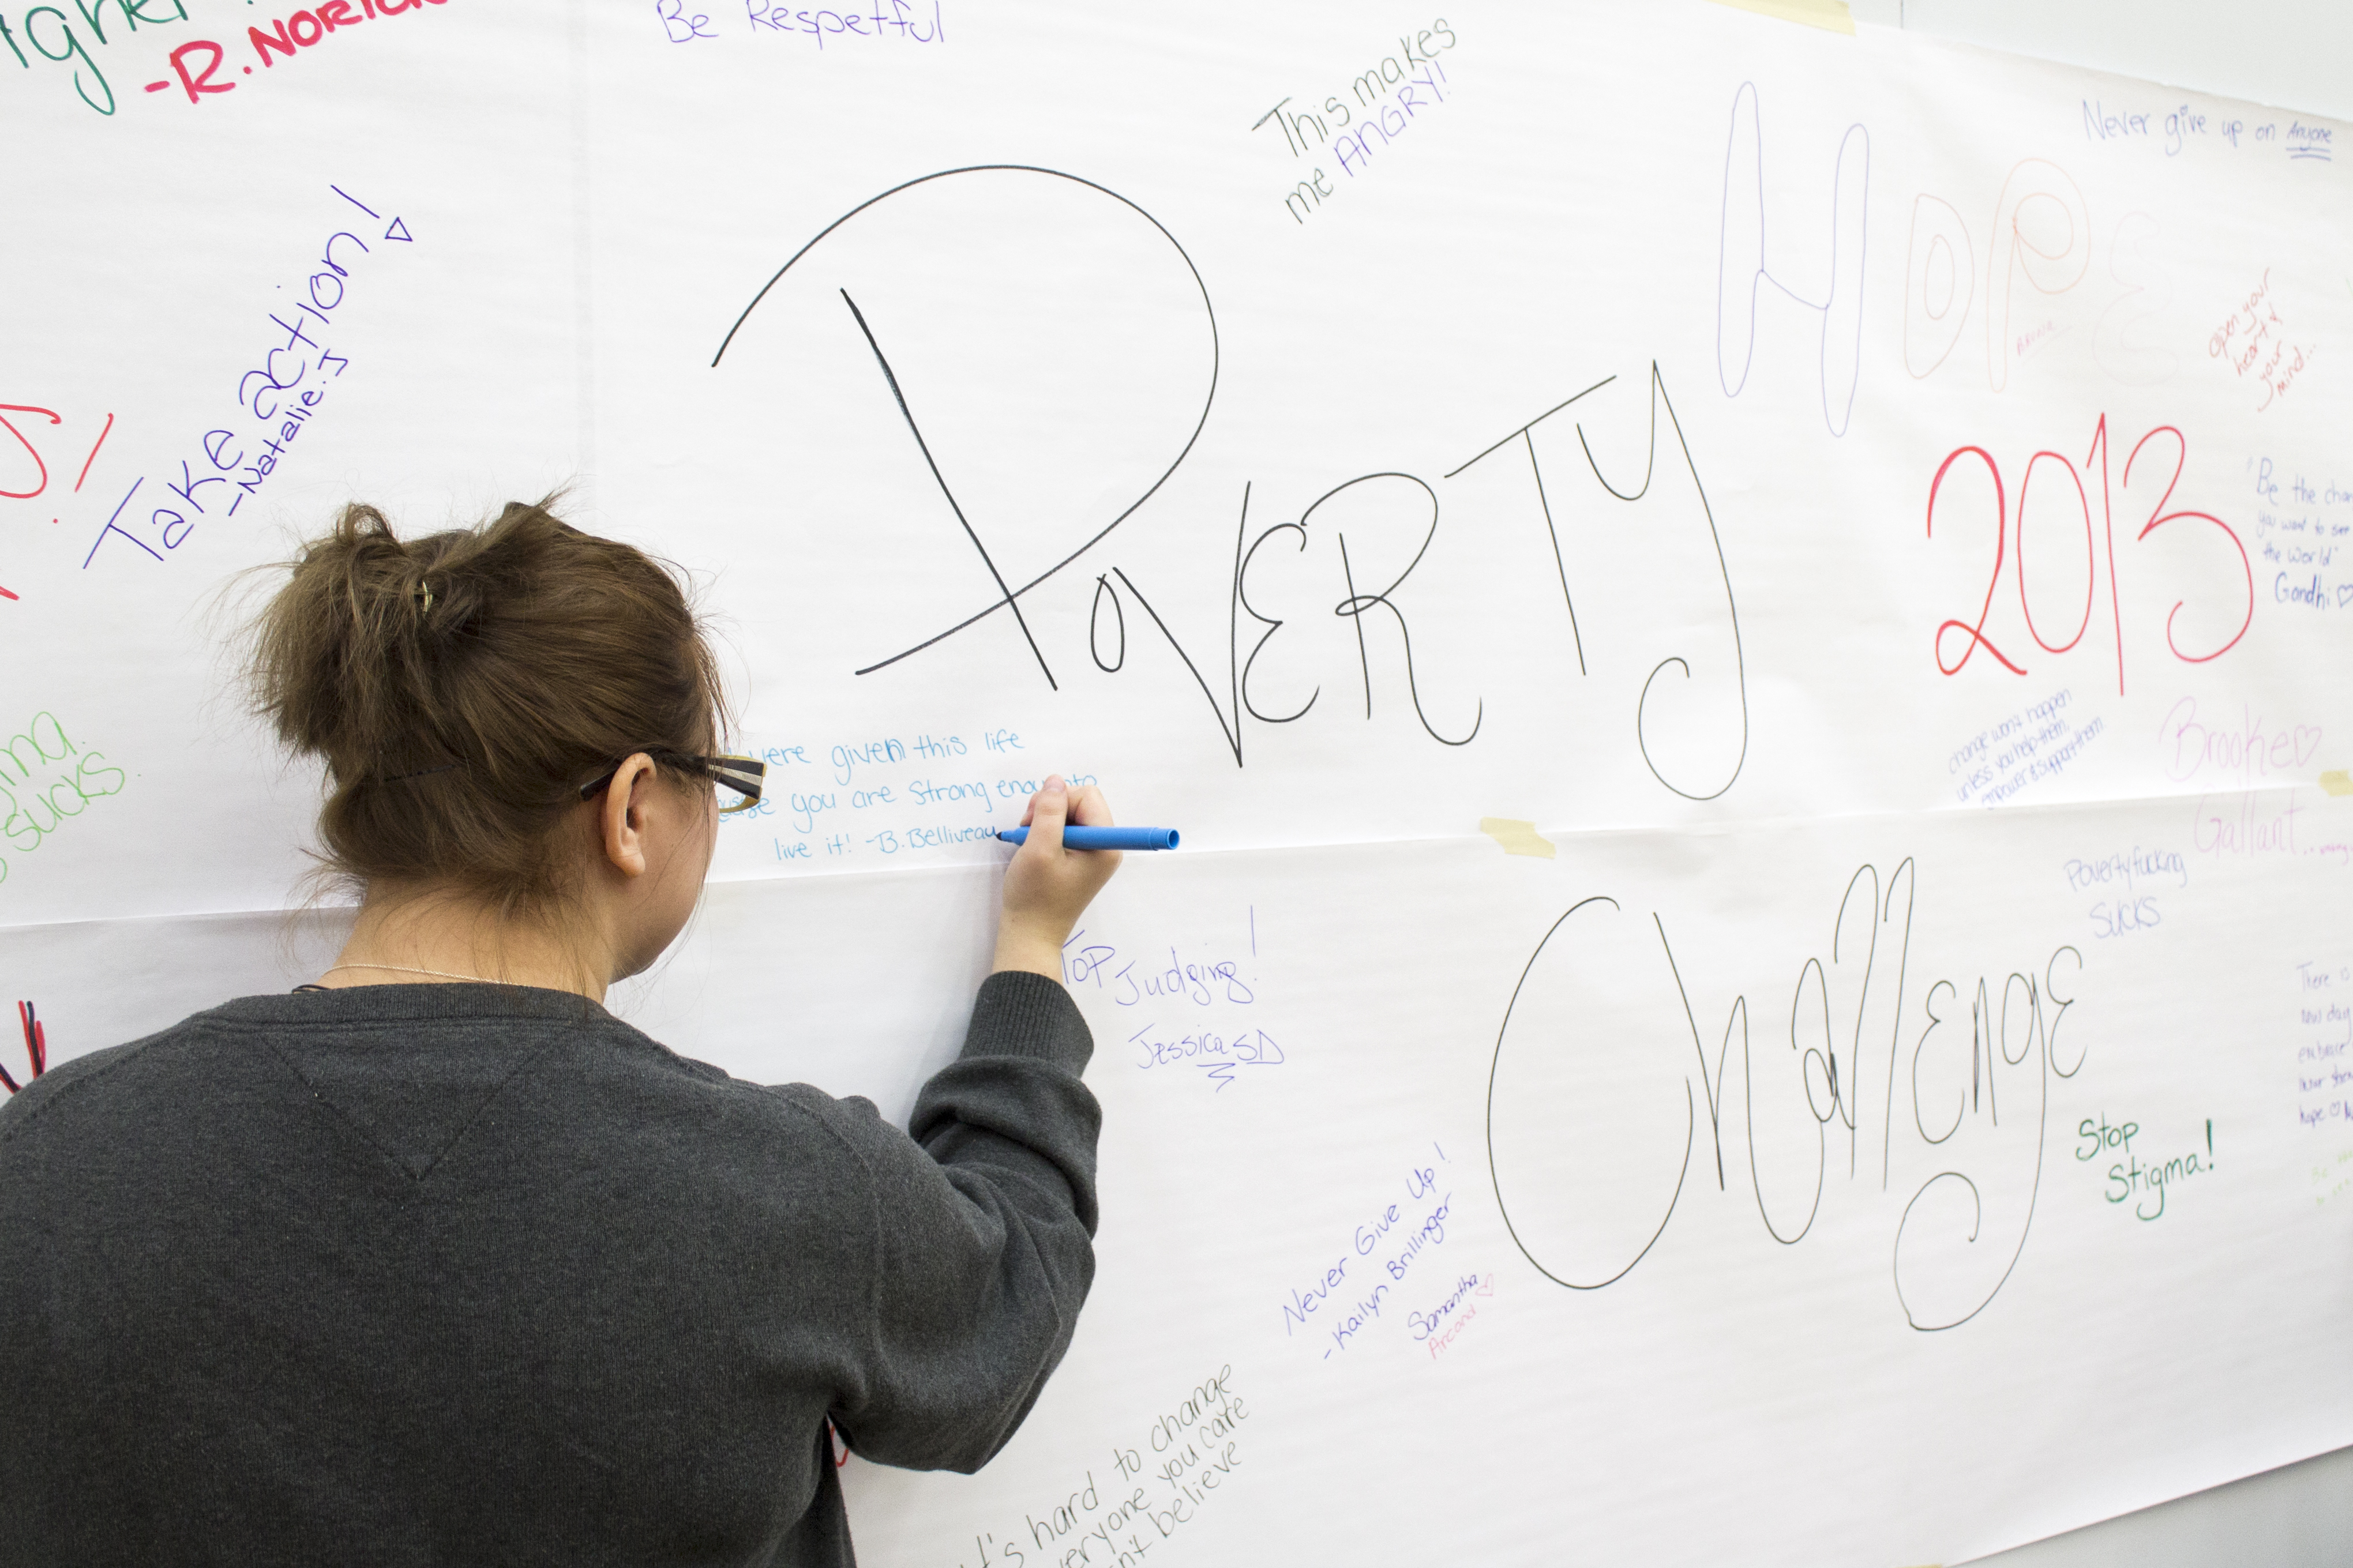 -R. NORICK
Be Respetful
This makes
me ANGRY!
Never give up on Anyone
Take action!
-Natalie.J
POVERTY
HOPE
open your
heart &
your
mind...
2013
"Be the
you want to see
the world"
Gandhi
were given this life
you are strong
live it! -B. Belliveau
change won't happen
unless you help them,
empower & support them.
Brooke
Gallant
SUCKS
Challenge
Povertyfucking
SUCKS
Judging!
Jessica SD
There is
new day
embrace
hope
Stop
Stigma!
Never Give Up!
-Kailyn Brillinger
Samantha
Arcand
hard to change
you care
believe